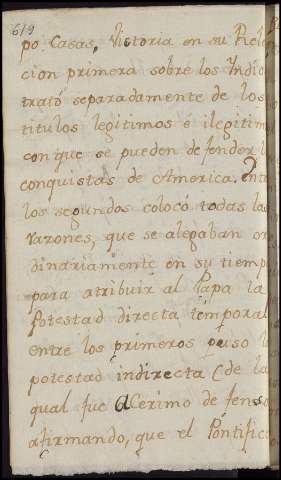 619
po. Casas, Victoria en su Rela
cion primera sobre los Indio
trató separadamente de los
titulos legitimos é ilegitim
con que se pueden defender l
conquistas de America. Entre
los segundos colocó todas las
razones, que se alegaban or
dinariamente en su tiemp
para atribuir al Papa la
Potestad directa temporal
entre los primeros puso l
potestad indirecta (de la
qual fue acerimo defenso
afirmando, que el Pontific